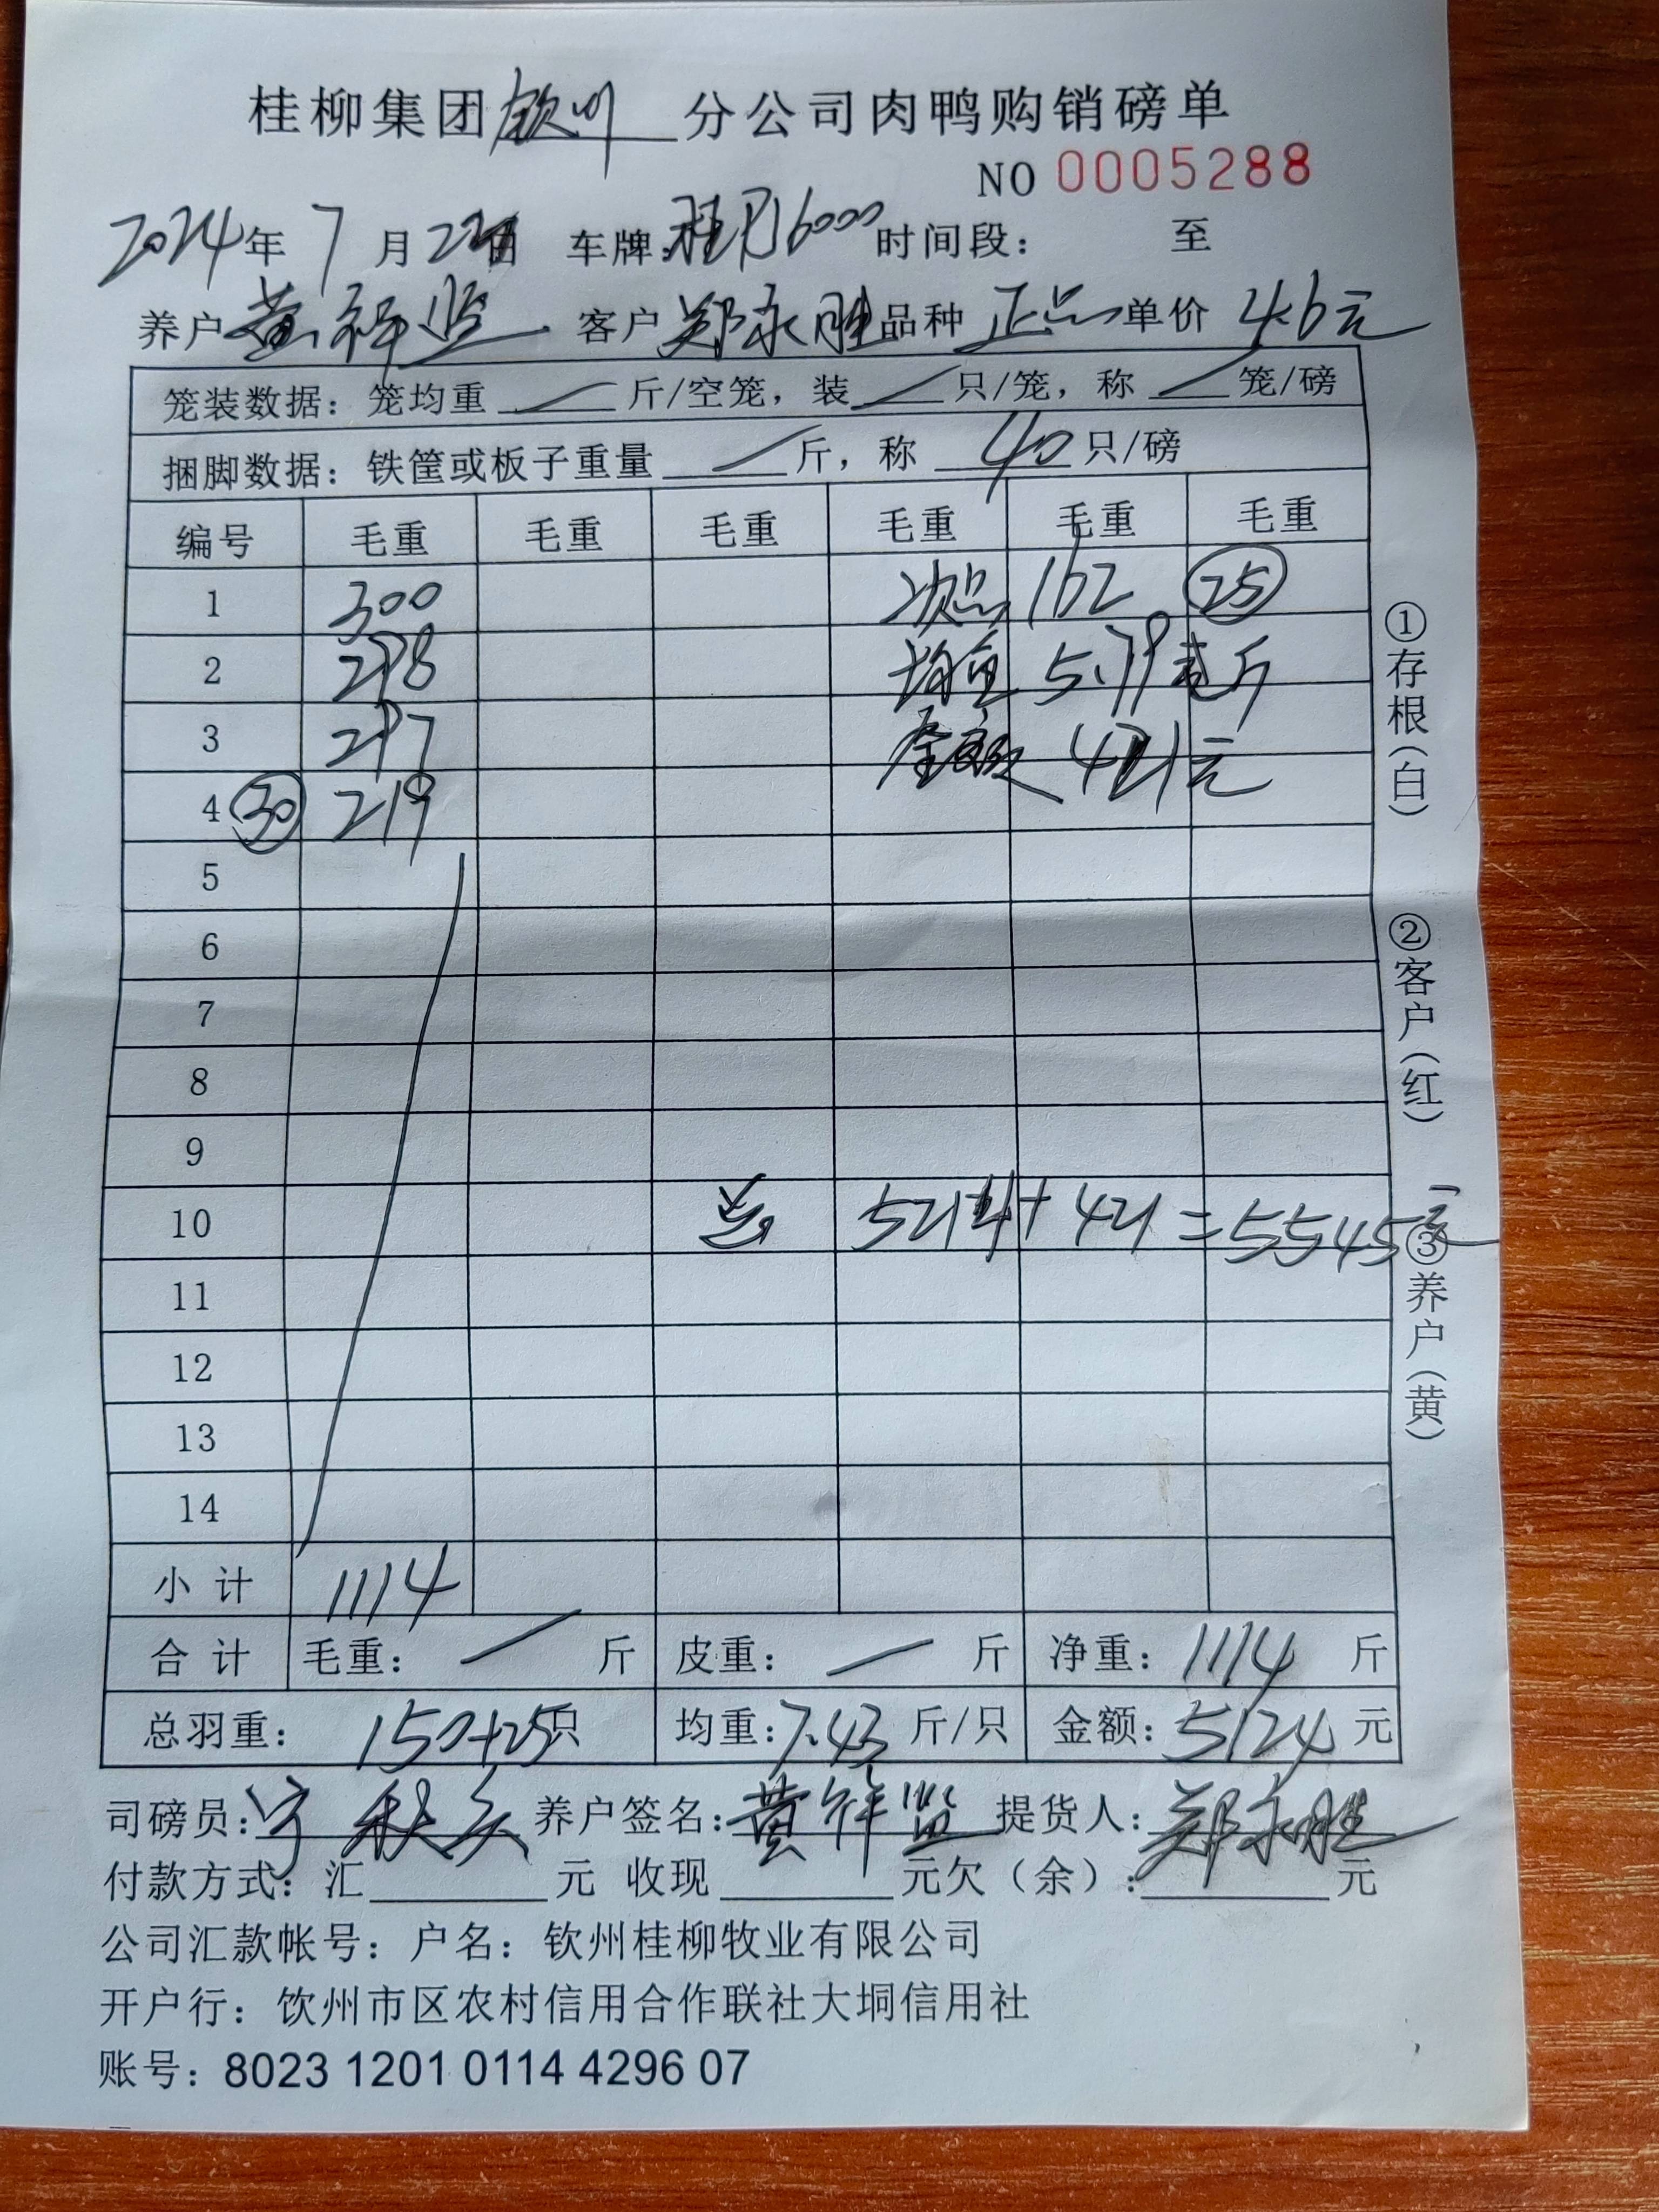 桂柳集团钦州分公司肉鸭购销磅单
NO 0005288
2024年7月22日 车牌:桂 16000 时间段: 至
养户黄祥监 客户郑永胜品种 正品 单价 4.6元
笼装数据: 笼均重 / 斤/空笼, 装 / 只/笼, 称 / 笼/磅
捆脚数据: 铁筐或板子重量 / 斤, 称 40 只/磅
编号 毛重 毛重 毛重 毛重 毛重 毛重
1 300 次品 162 25
2 298 均重 5.79 斤
3 297 金额 421元
4 30 219
5
6
7
8
9
10 总 5124+421=5545元
11
12
13
14
小计 1114
合计 毛重: / 斤 皮重: / 斤 净重: 1114 斤
总羽重: 150+25只 均重:7.43 斤/只 金额:5124 元
司磅员:宁秋 养户签名:黄祥监 提货人:郑永胜
付款方式: 汇 元 收现 元欠(余): 元
公司汇款帐号: 户名: 钦州桂柳牧业有限公司
开户行: 饮州市区农村信用合作联社大垌信用社
账号: 8023 1201 0114 4296 07
①存根(白)
②客户(红)
③养户(黄)